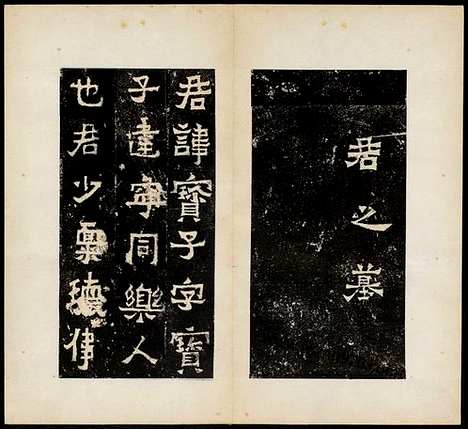 君之墓
君諱寳子字寳
子建寧同樂人
也君少稟瓌偉